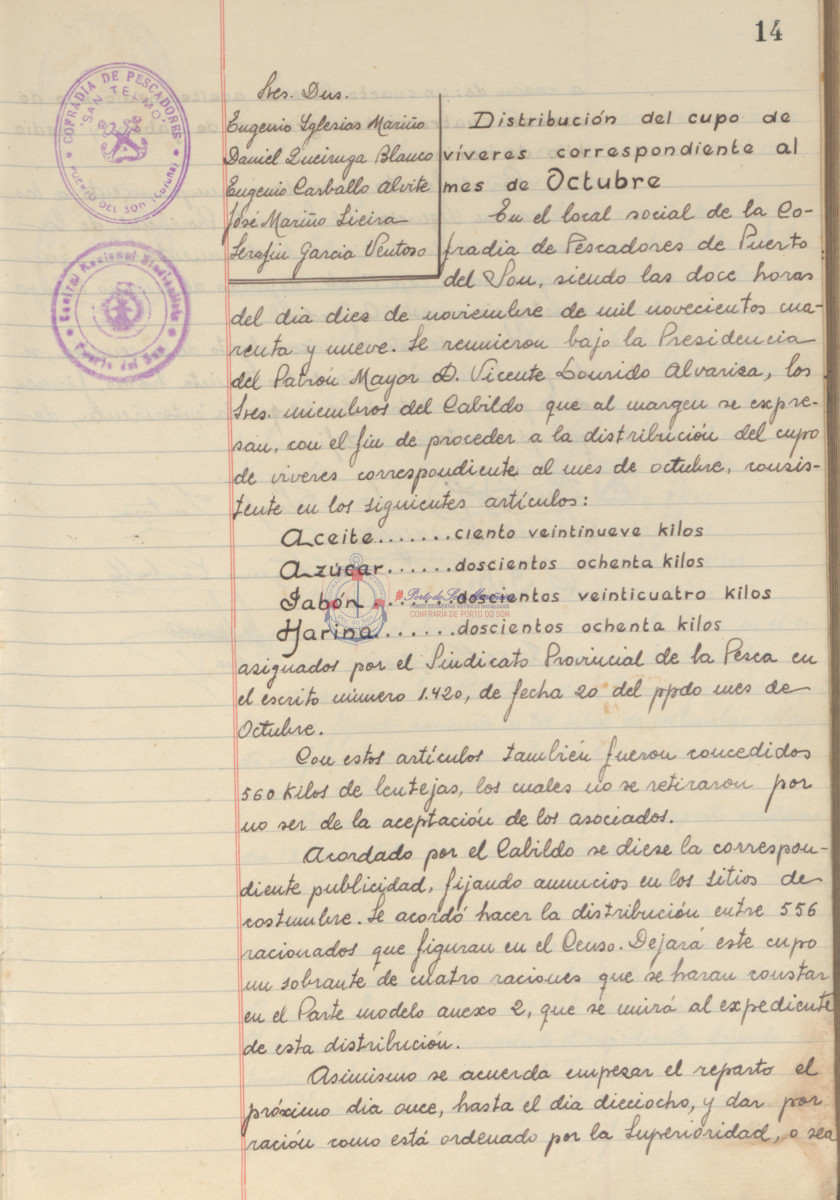 14
COFRADIA DE PESCADORES
SAN TELMO
PUERTO DEL SON (CORUÑA)
Central Nacional Sindicalista
Puerto del Son
Sres. Dns.
Eugenio Yglesias Mariño
Daniel Queiruga Blanco
Eugenio Carballo Alvite
José Mariño Lieira
Serafin Garcia Ventoso
Distribución del cupo de
víveres correspondiente al
mes de Octubre
En el local social de la Co-
fradia de Pescadores de Puerto
del Son, siendo las doce horas
del dia dies de noviembre de mil novecientos cua-
renta y nueve. Se reunieron bajo la Presidencia
del Patrón Mayor D. Vicente Lourido Alvariza, los
Sres. miembros del Cabildo que al margen se expre-
san, con el fin de proceder a la distribución del cupo
de viveres correspondiente al mes de octubre, consis-
tente en los siguientes artículos:
Aceite.......ciento veintinueve kilos
Azúcar......doscientos ochenta kilos
Jabón.......doscientos veinticuatro kilos
Harina.......doscientos ochenta kilos
Porto do Son
CONFRARIA DE PORTO DO SON
asignados por el Sindicato Provincial de la Pesca en
el escrito número 1.420, de fecha 20 del ppdo mes de
Octubre.
Con estos artículos también fueron concedidos
560 kilos de lentejas, los cuales no se retiraron por
no ser de la aceptación de los asociados.
Acordado por el Cabildo se diese la correspon-
diente publicidad, fijando anuncios en los sitios de
costumbre. Se acordó hacer la distribución entre 556
racionados que figuran en el Censo. Dejará este cupo
un sobrante de cuatro raciones que se haran constar
en el Parte modelo anexo 2, que se unirá al expediente
de esta distribución.
Asimismo se acuerda empezar el reparto el
próximo dia once, hasta el dia dieciocho, y dar por
ración como está ordenado por la Superioridad, o sea